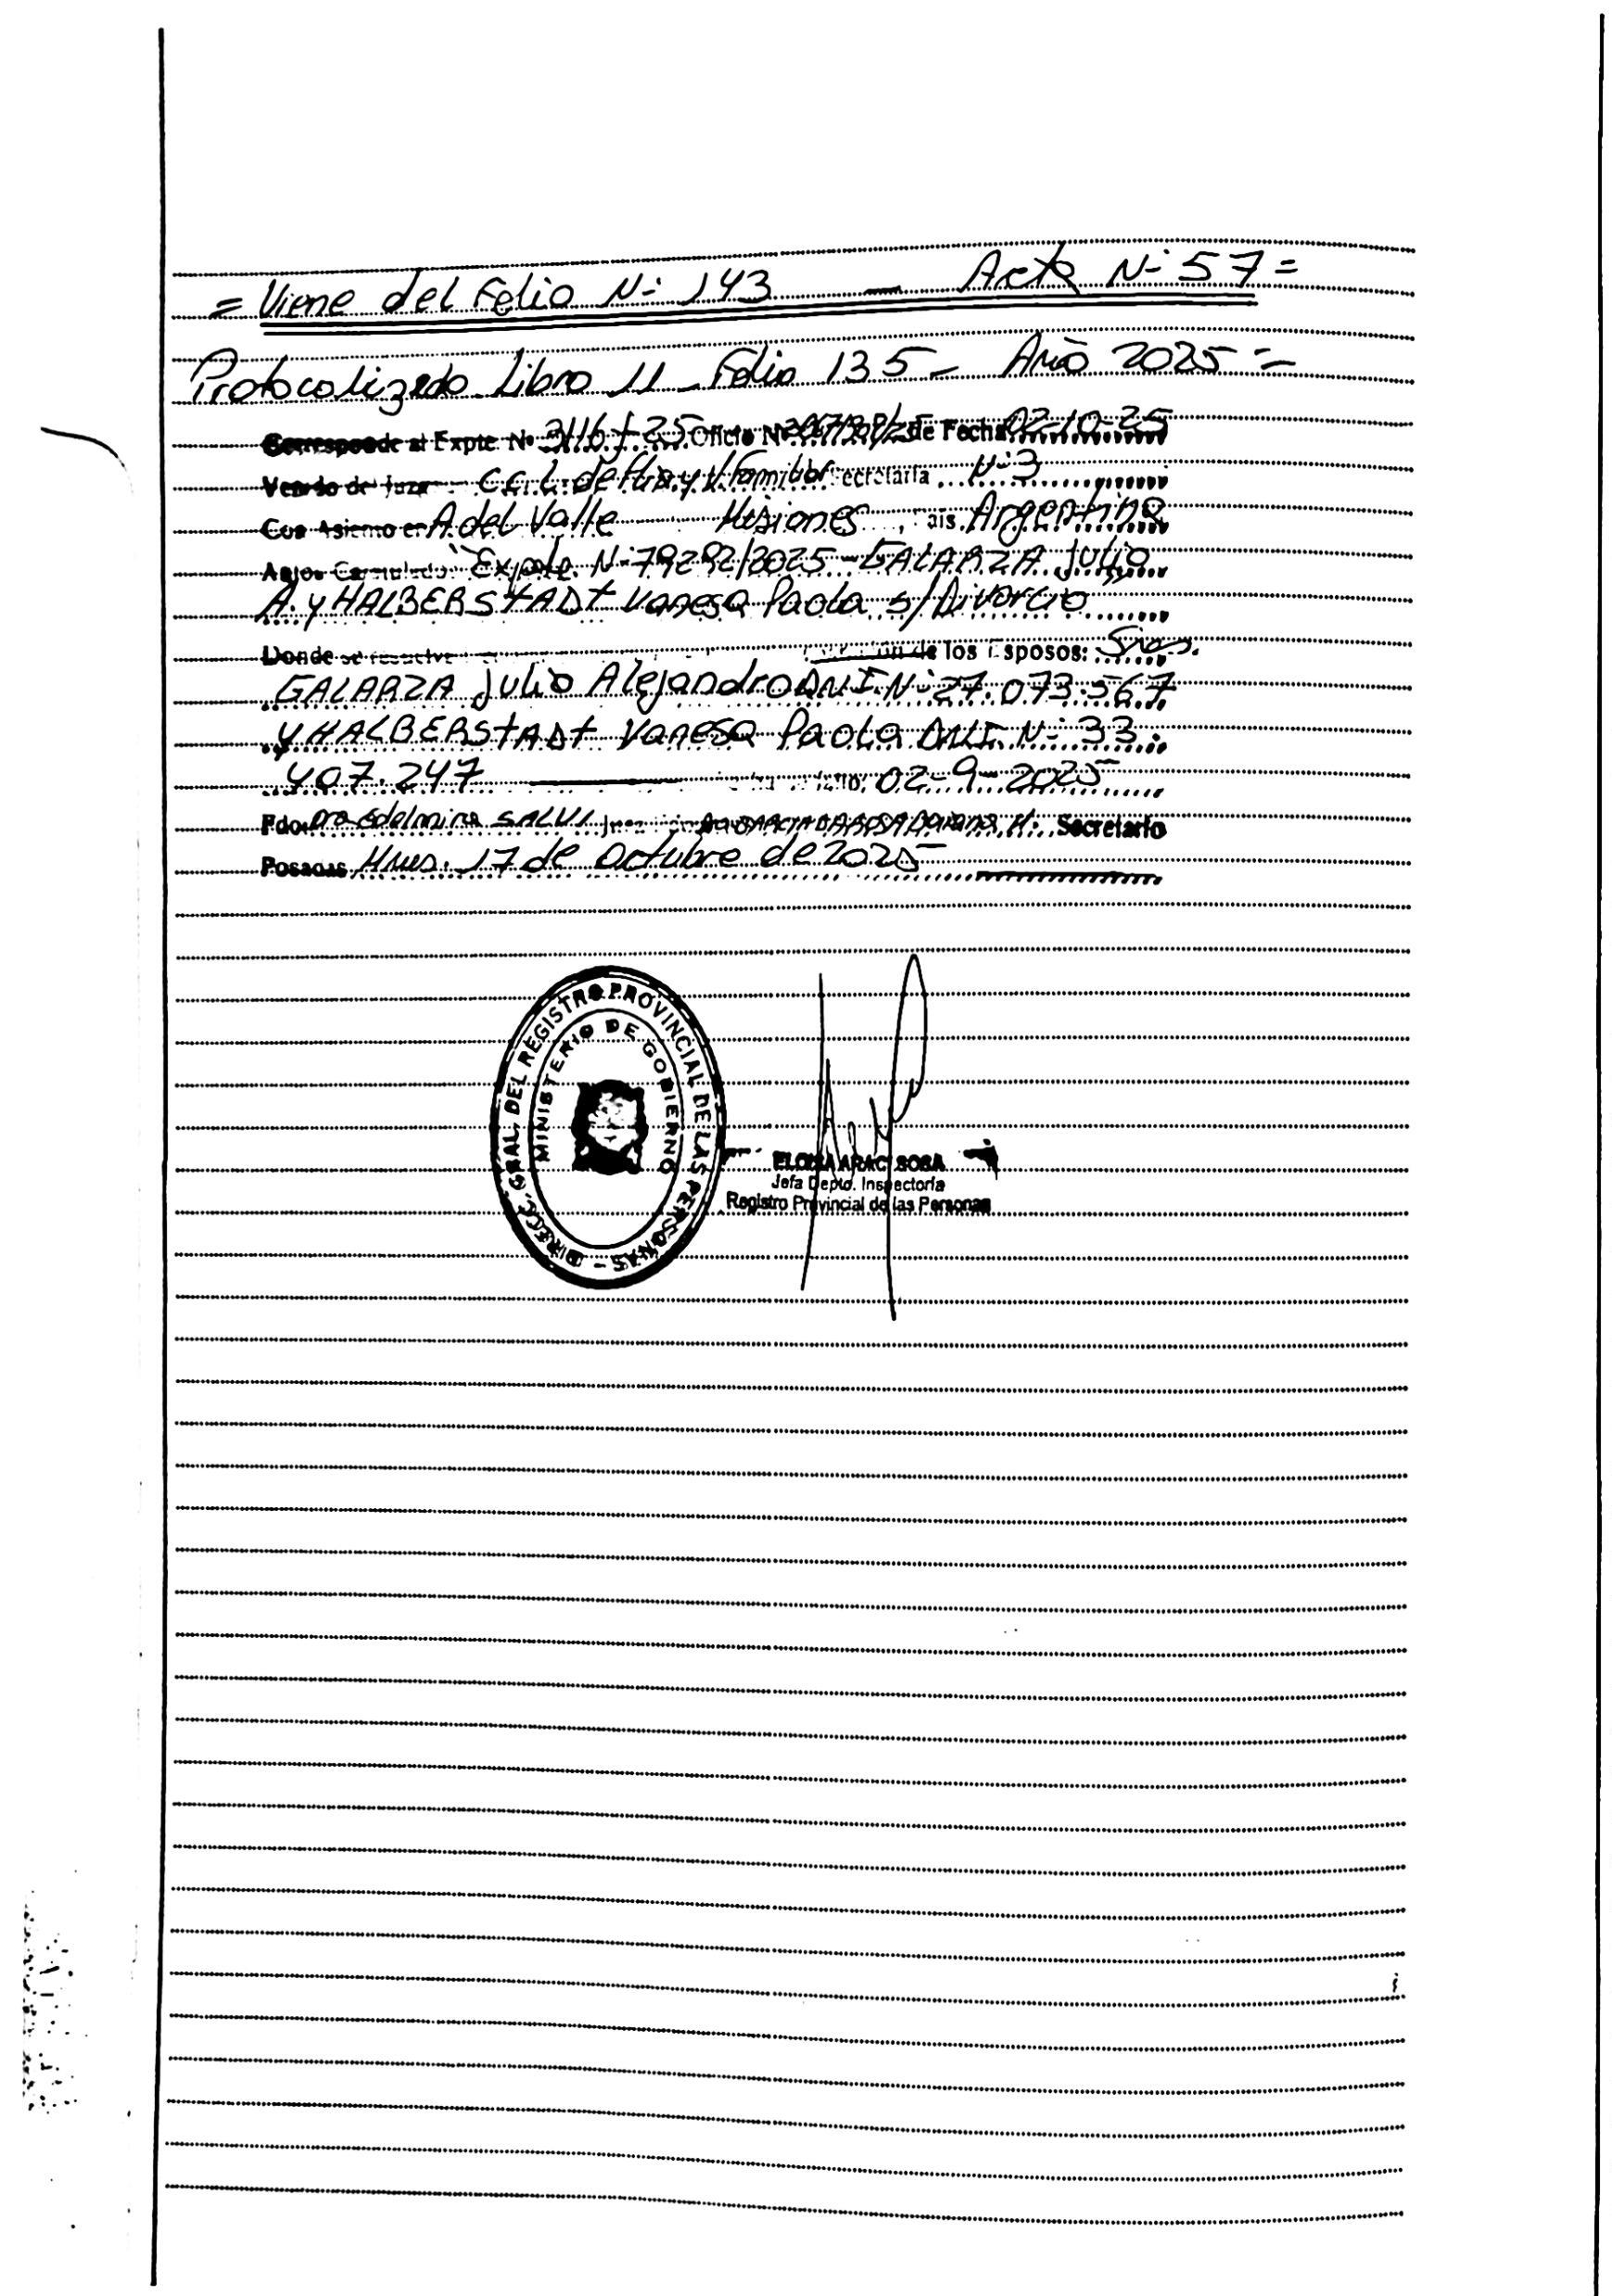 = Viene del Folio N- 143 — Acta N- 57 =
Protocolizado Libro 11 - Folio 135 - Año 2025 =
Corresponde al Expte. No 3116/25 Oficio No de Fecha 02-10-25
C.C.L. de Flia y V. Familiar Secretaría N- 3
Con Asiento en A del Valle Misiones, País Argentina
Autos Caratulado: "Expte. N- 79292/2025 - GALARZA Julio
A. y HALBERSTADT Vanesa Paola s/Divorcio
Donde se resuelve de los Esposos: Sres.
GALARZA Julio Alejandro DNI. N- 27.073.567
y HALBERSTADT Vanesa Paola DNI. N- 33.
407.247 02-9-2025
Fdo: Dra Edelmira SALVI Juez Secretario
Posadas Mnes. 17 de Octubre de 2025
DIRECC. GRAL. DEL REGISTRO PROVINCIAL DE LAS PERSONAS -
MINISTERIO DE GOBIERNO
SOSA
Jefa Depto. Inspectoría
Registro Provincial de las Personas